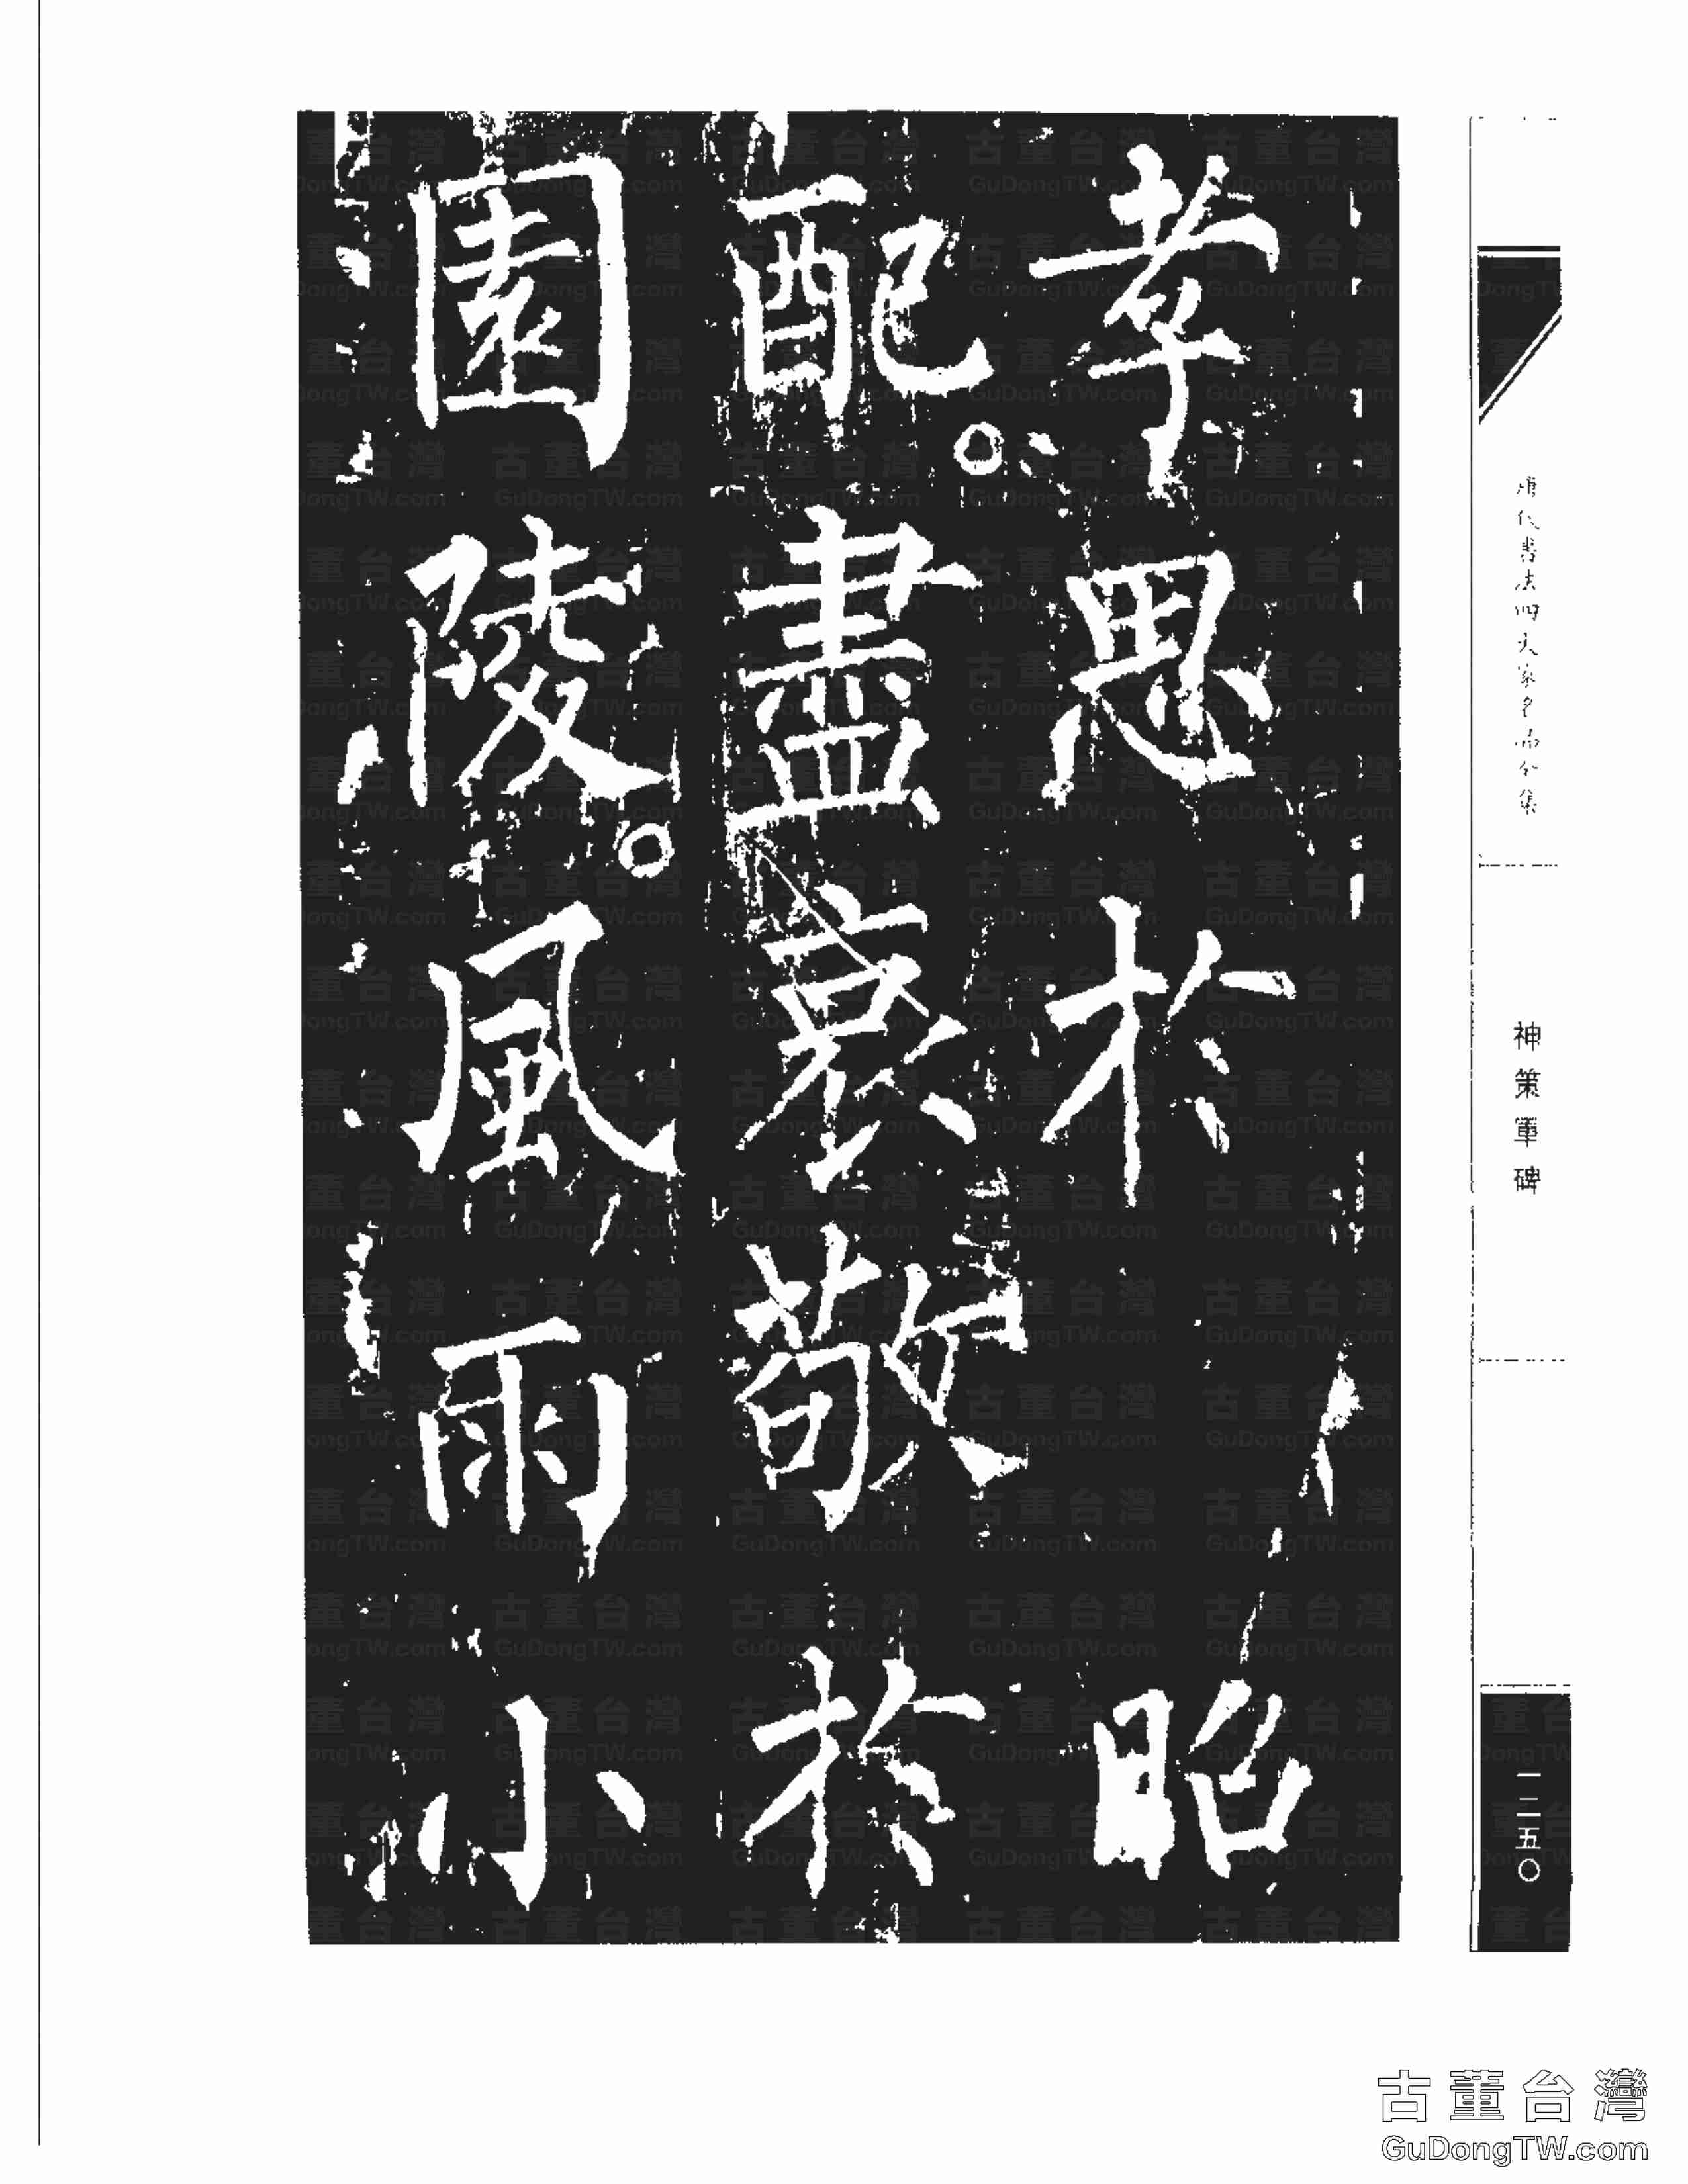 孝思於昭
配。盡哀敬於
園陵。風雨小
唐代書法四大家名品全集
神策軍碑
一二五〇
古董台灣
GuDongTW.com